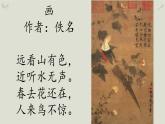 画
作者：佚名
远看山有色，
近听水无声。
春去花还在，
人来鸟不惊。